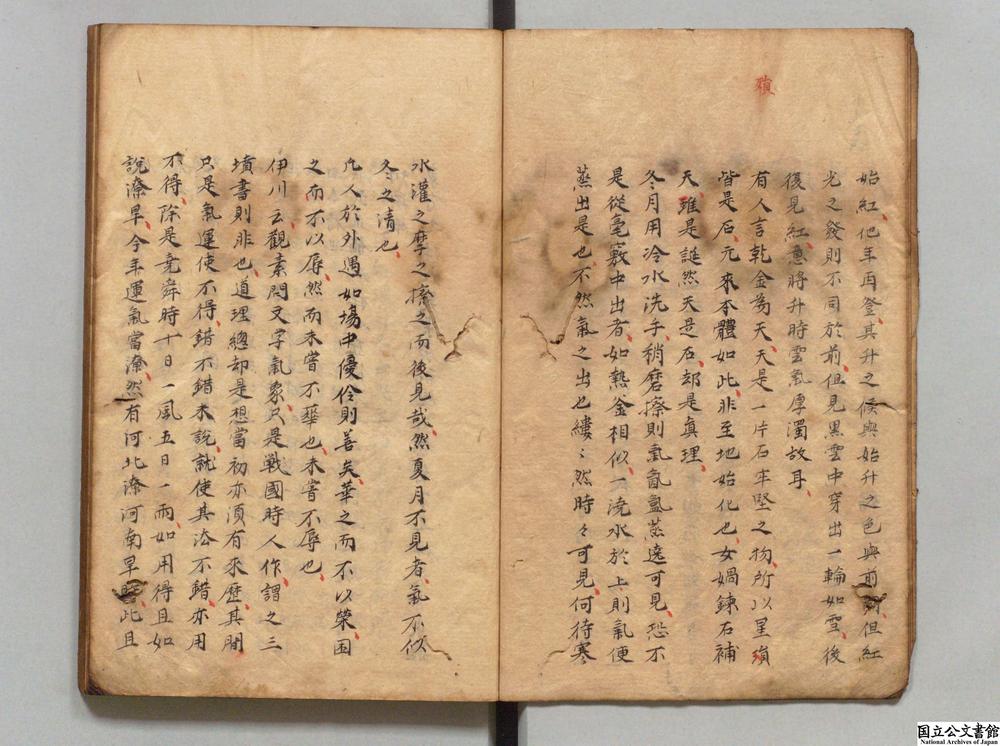 始紅他年再登其升之候與始升之色與前同但紅
光之發則不同於前但見黑雲中穿出一輪如雪後
後見紅意將升時雲氣厚濁故耳
殞
有人言乾金為天天是一片石牢堅之物所以星殞
皆是石元來本體如此非至地始化也女媧鍊石補
天雖是誕然天是石却是真理
冬月用冷水洗手稍磨擦則氣氤氳蒸遠可見恐不
是從毫竅中出者如熱釜相似一澆水於上則氣便
蒸出是也不然氣之出也縷々然時々可見何待寒
水灌之摩之擦之而後見哉然夏月不見者氣不似
冬之清也
凡人於外遇如場中優伶則善矣華之而不以榮囯
之而不以辱然而未嘗不華也未嘗不辱也
伊川云觀素問文字氣象只是戰國時人作謂之三
墳書則非也道理總却是想當初亦須有來歷其間
只是氣運使不得錯不錯未說就使其法不錯亦用
不得除是堯舜時十日一風五日一雨如用得且如
說潦旱今年運氣當潦然有河北潦河南旱此且
国立公文書館
National Archives of Japan